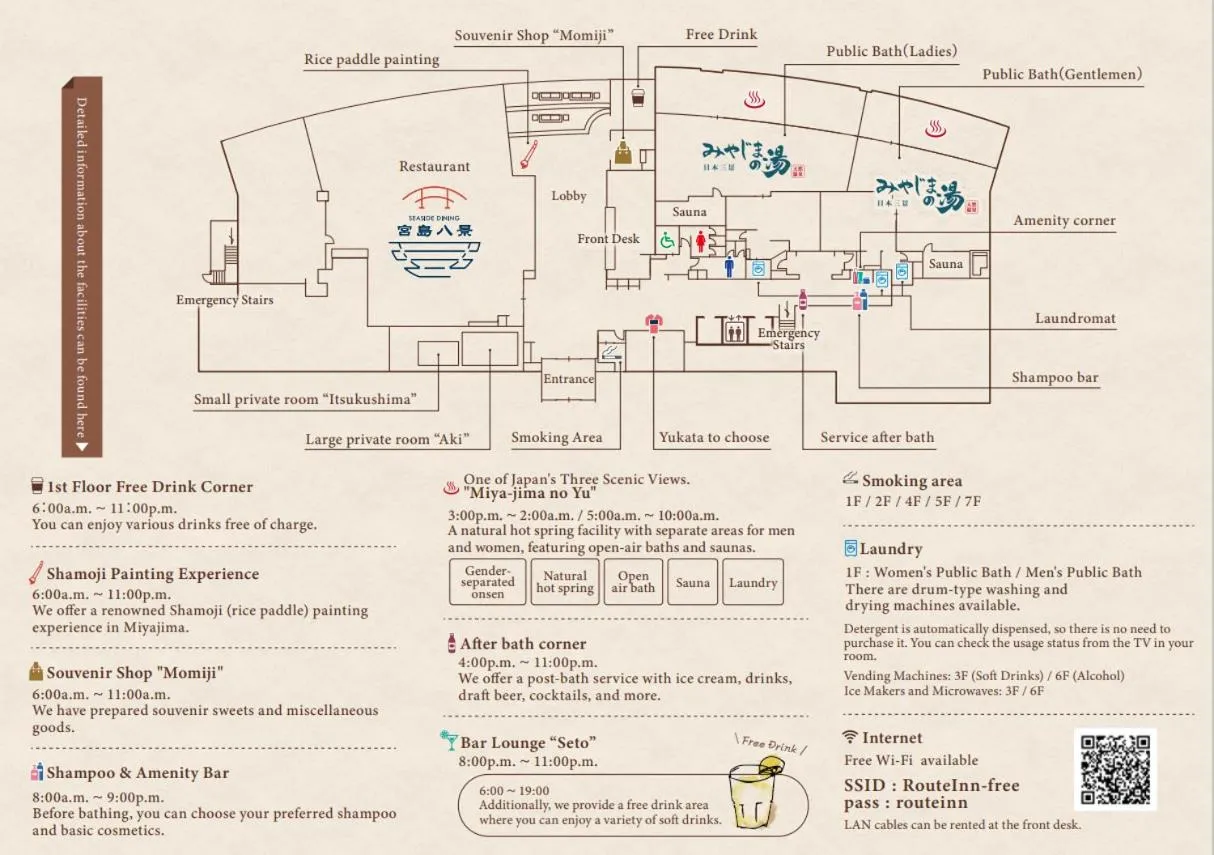 Souvenir Shop “Momiji”
Free Drink
Rice paddle painting
Public Bath(Ladies)
Public Bath(Gentlemen)
Detailed information about the facilities can be found here▼
Restaurant
SEASIDE DINING
宮島八景
Lobby
Front Desk
みやじまの湯
日本三景
Sauna
みやじまの湯
日本三景
Amenity corner
Sauna
Emergency Stairs
Emergency
Stairs
Laundromat
Entrance
Shampoo bar
Small private room “Itsukushima”
Large private room “Aki”
Smoking Area
Yukata to choose
Service after bath
1st Floor Free Drink Corner
6:00a.m. ~ 11:00p.m.
You can enjoy various drinks free of charge.
Shamoji Painting Experience
6:00a.m. ~ 11:00p.m.
We offer a renowned Shamoji (rice paddle) painting
experience in Miyajima.
Souvenir Shop "Momiji"
6:00a.m. ~ 11:00a.m.
We have prepared souvenir sweets and miscellaneous
goods.
Shampoo & Amenity Bar
8:00a.m. ~ 9:00p.m.
Before bathing, you can choose your preferred shampoo
and basic cosmetics.
One of Japan's Three Scenic Views.
"Miya-jima no Yu"
3:00p.m. ~ 2:00a.m. / 5:00a.m. ~ 10:00a.m.
A natural hot spring facility with separate areas for men
and women, featuring open-air baths and saunas.
Gender-
separated
onsen
Natural
hot spring
Open
air bath
Sauna
Laundry
After bath corner
4:00p.m. ~ 11:00p.m.
We offer a post-bath service with ice cream, drinks,
draft beer, cocktails, and more.
Bar Lounge “Seto”
8:00p.m. ~ 11:00p.m.
\ Free Drink /
6:00 ~ 19:00
Additionally, we provide a free drink area
where you can enjoy a variety of soft drinks.
Smoking area
1F / 2F / 4F / 5F / 7F
Laundry
1F : Women's Public Bath / Men's Public Bath
There are drum-type washing and
drying machines available.
Detergent is automatically dispensed, so there is no need to
purchase it. You can check the usage status from the TV in your
room.
Vending Machines: 3F (Soft Drinks) / 6F (Alcohol)
Ice Makers and Microwaves: 3F / 6F
Internet
Free Wi-Fi available
SSID : RouteInn-free
pass : routeinn
LAN cables can be rented at the front desk.